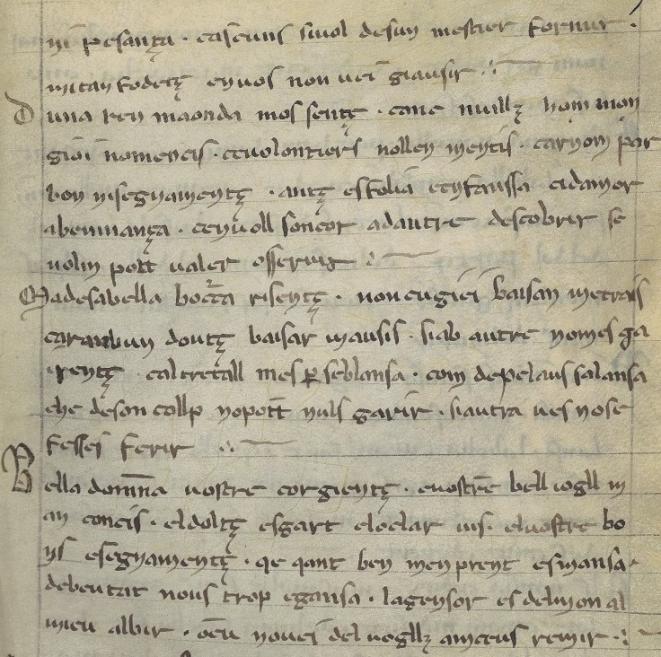 ni pesança · caseuns siuol desun mestier formir ·
mitan fodetz enuos non uei giausir
Duna ren maonda mos sentz · canc nuillz hom mon
gioi nomencis · ceuolontiers nollen mentis · carnom par
bon nisegnamentz · antz esfolia etnfanssa cidamor
abenmança · cenuoll soncor adautre descobrir se
nolin pott ualer osseruir
Madesabella bocca risentz · non cugiei baisan metrais
caranbun doutz baisar mausis · siab autre nomes ga
irentz · caltretall mes ꝑ seblansa · com depelaus salansa
che deson collp nopott nuls garir · siautra ues nose
fesses ferir
Bella domna uostre corgientz · euostre bell uogll m
an concis · eldoltz esgart eloclar uis · eluostre bo
ns esegnamentz · qe qant ben menprent esmansa
debeutat nous trop egansa · lagensor es delmon al
mieu albir · oeu nouei del uogllz amceus remir ·